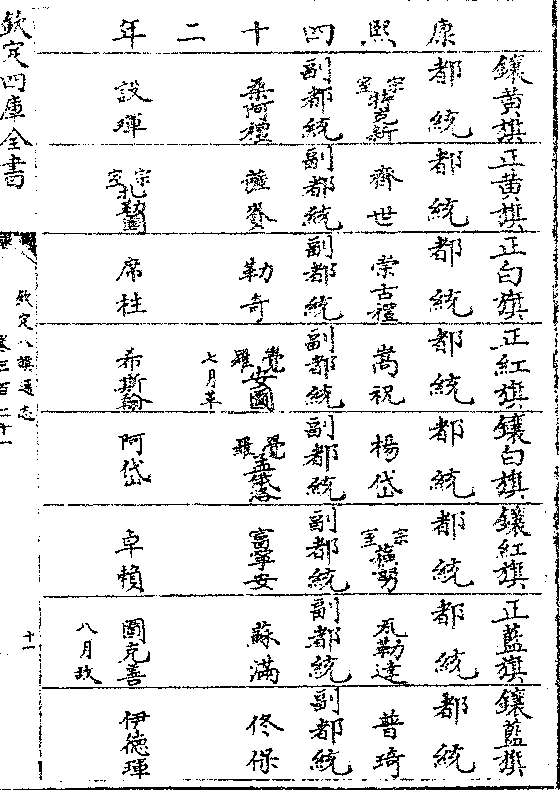 鑲黃旗 正黃旗 正白旗 正紅旗 鑲白旗 鑲紅旗 正藍旗 鑲藍旗
康 都統 都統 都統 都統 都統 都統 都統 都統
熙 宗室特克新 齊世 崇古禮 嵩祝 楊岱 宗室 普琦
四 副都統 副都統 副都統 副都統 副都統 副都統 副都統 副都統
十 桑阿禮 薩賚 勒奇 覺羅安圖 覺羅孟俄洛 富寧安 蘇滿 佟保
二 七月革
年 設琿 宗室 席柱 希斯翰 阿岱 卓賴 圖克善 伊德琿
八月故
欽定四庫全書
欽定八旗通志
卷三百二十一
十一